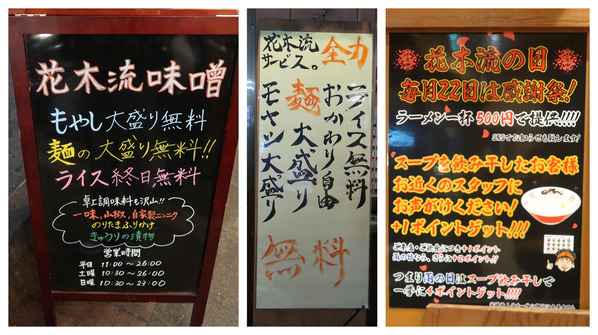 花木流味噌
もやし大盛り無料
麺の大盛り無料!!
ライス終日無料
卓上調味料も沢山!!
一味、山椒、自家製ニンニク
のりたまふりかけ
きゅうりの漬物
営業時間
平日 11:00〜26:00
土曜 10:30〜26:00
日曜 10:30〜23:00
花木流
サービス。
全力
ライス無料
おかわり自由
麺大盛り
モヤシ大盛り
無料
花木流の日
毎月22日は感謝祭!
ラーメン一杯500円で提供!!!!
スープを飲み干したお客様
お近くのスタッフに
お声がけください!
+1ポイントゲット!!!!
つまり流の日はスープ飲み干しで
一挙に4ポイントゲット!!!!